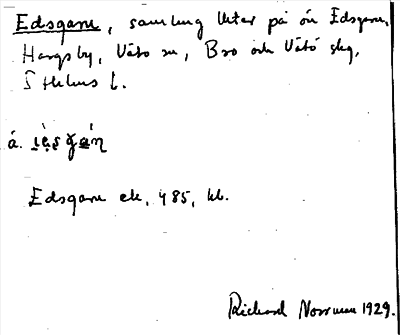 Edsgarn, samling lktar på ön Edsgarn,
Hargsby, Vätö sn, Bro och Vätö skg,
Sthlms l.
å.
Edsgarn ek. 485, kb.
Rickard Norrman 1929.